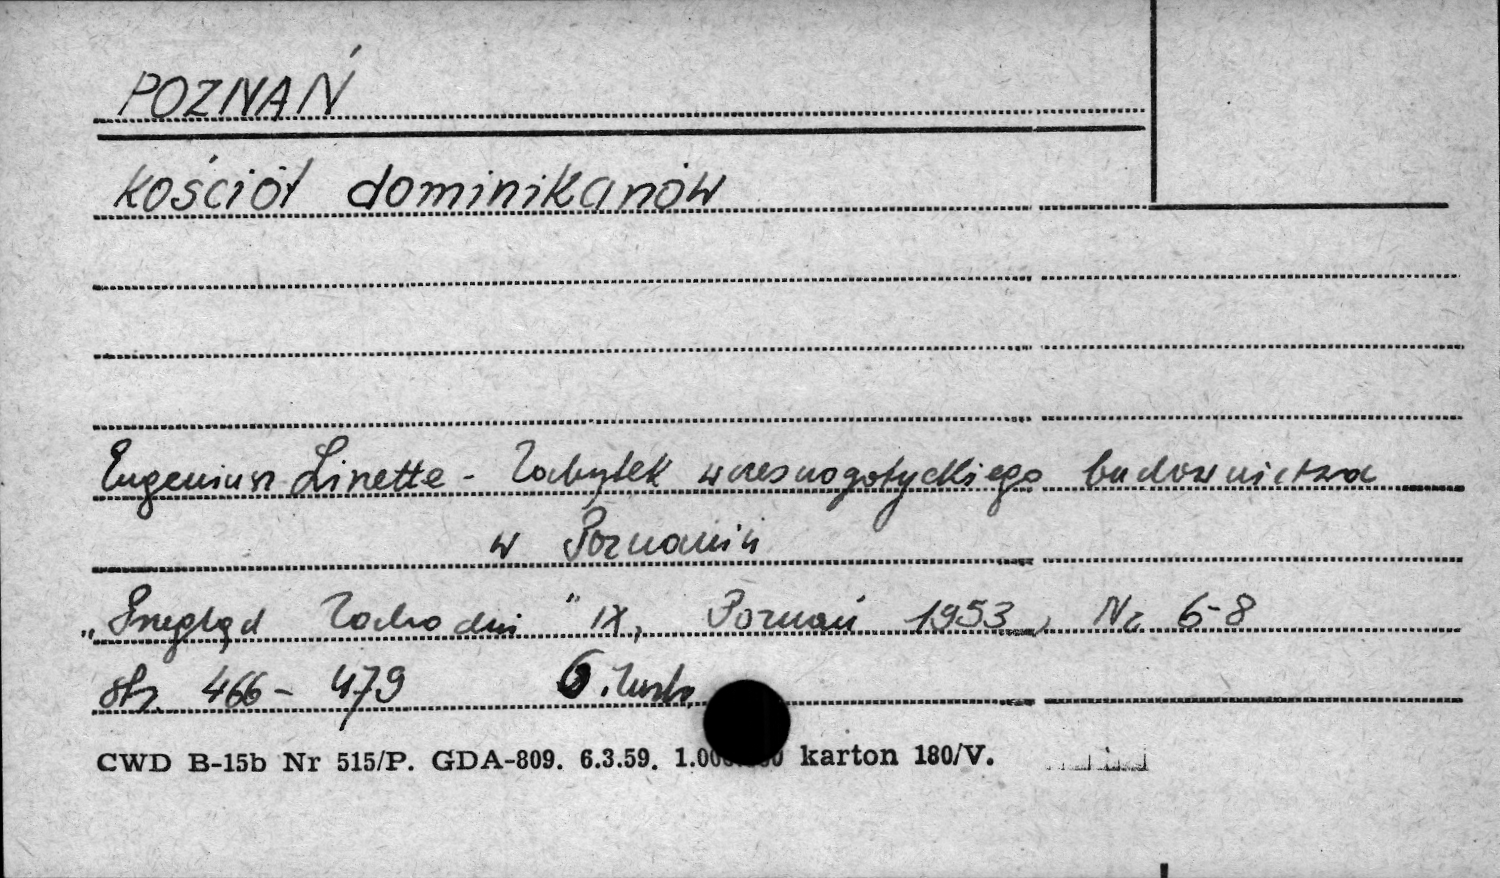 POZNAŃ
kościół dominikanów
Eugeniusz Linette - Zabytek wczesnogotyckiego budownictwa
w Poznaniu
„Przegląd Zachodni" IX, Poznań 1953, Nr 6-8
str. 466-479 6. ilustr.
CWD B-15b Nr 515/P. GDA-809. 6.3.59. karton 180/V.